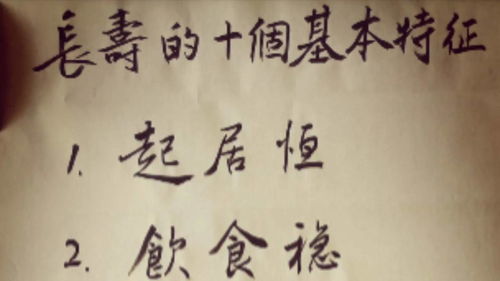 長壽的十個基本特征
1. 起居恒
2. 飲食穏